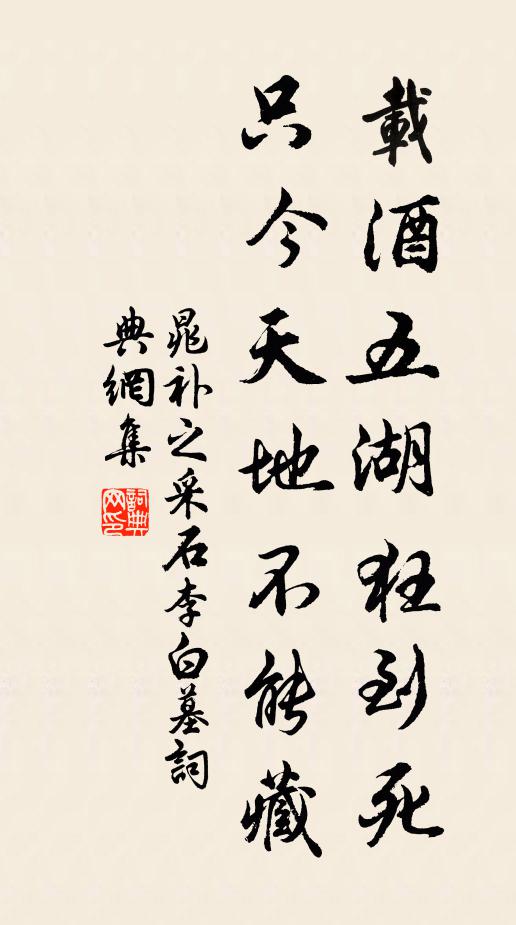 載酒五湖狂到死
只今天地不能藏
晁補之采石李白墓詞
典網集
詞典
网印